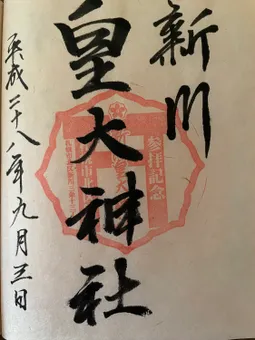 新川
皇大神社
平成二十八年九月三日
参拝記念